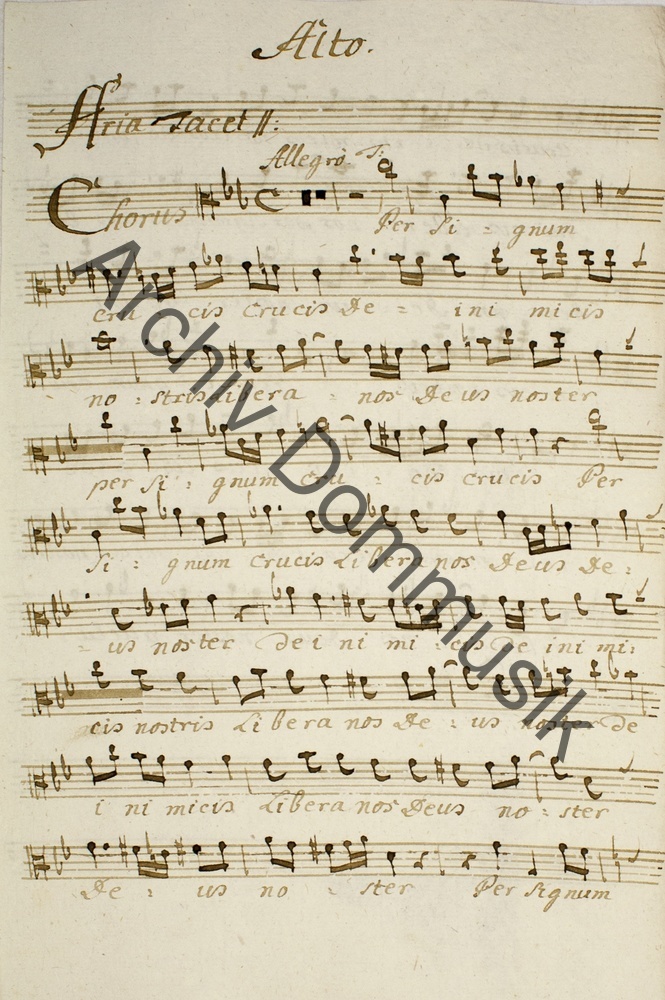 Alto.
Aria Tacet ||:
Allegro T:
Chorus
Per Si = gnum
cru cis crucis De = ini micis
no = stris libera = nos Deus noster
per si = gnum cru = cis crucis Per
Si = gnum crucis Libera nos Deus De =
= us noster de i ni mi = cis de ini mi =
cis nostris Libera nos De = us noster de
i ni micis Libera nos Deus no = ster
De = us no = ster Per signum
Archiv Dommusik